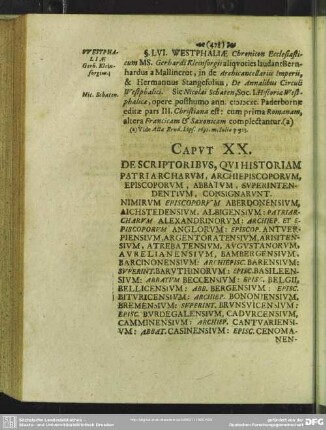 (478)
WESTPHA-
LIAE
Gerh. Klein-
sorgius,
Nic. Schaten.
§. LVI. WESTPHALIÆ Chronicon Ecclesiasti-
cum MS. Gerhardi Kleinsorgii aliquoties laudant Bern-
hardus a Mallincrot, in de Archicancellariis Imperii,
& Hermannus Stangefolius, De Annalibus Circuli
Westphalici. Sic Nicolai Schaten, Soc. I. Historia West-
phalica, opere posthumo ann. Paderbornæ
editæ pars III. Christiana est: cum prima Romanam,
altera Francicam & Saxonicam complectantur. (a)
(a) Vide Acta Erud. Lips. m. Julio p.
CAPVT XX.
DE SCRIPTORIBVS, QVI HISTORIAM
PATRIARCHARVM, ARCHIEPISCOPORVM,
EPISCOPORVM, ABBATVM, SVPERINTEN-
DENTIVM, CONSIGNARVNT.
NIMIRVM EPISCOPORVM ABERDONENSIVM,
AICHSTEDENSIVM, ALBIGENSIVM: PATRIAR-
CHARVM ALEXANDRINORVM: ARCHIEP. ET E-
PISCOPORVM ANGLORVM: EPISCOP. ANTVER-
PIENSIVM, ARGENTORATENSIVM, ARISITEN-
SIVM, ATREBATENSIVM, AVGVSTANORVM,
AVRELIANENSIVM, BAMBERGENSIVM,
BARCINONENSIVM: ARCHIEPISC. BARENSIVM:
SVPERINT. BARVTHINORVM: EPISC. BASILEEN-
SIVM: ABBATVM BECCENSIVM: EPISC. BELGII,
BELLICENSIVM: ABB. BERGENSIVM: EPISC.
BITVRICENSIVM: ARCHIEP. BONONIENSIVM,
BREMENSIVM: SVPERINT. BRVNSVICENSIVM:
EPISC. BVRDEGALENSIVM, CADVRCENSIVM,
CAMMINENSIVM: ARCHIEP. CANTVARIENSI-
VM: ABBAT. CASINENSIVM: EPISC. CENOMA-
NEN-